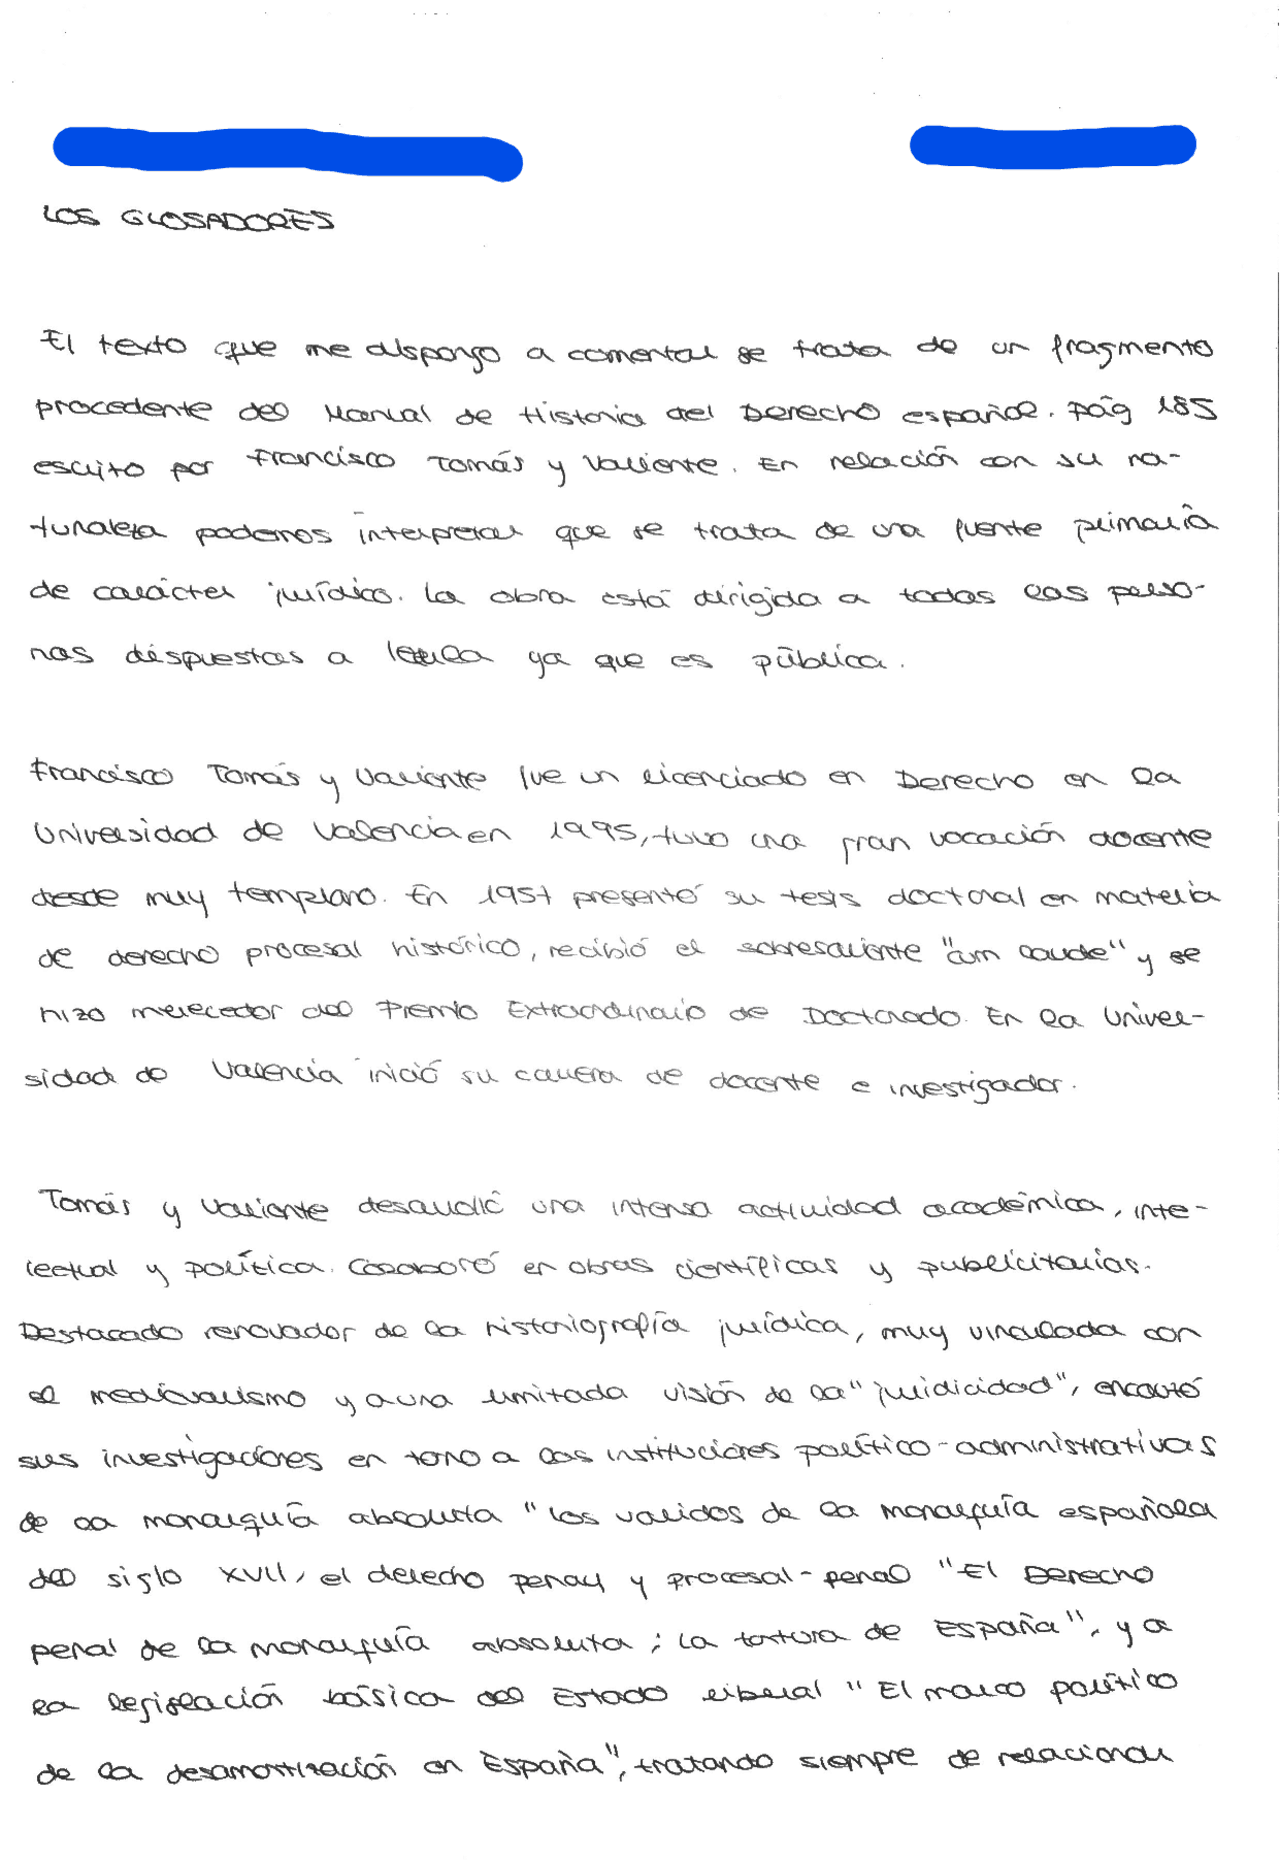 LOS GLOSADORES
El texto que me dispongo a comentar se trata de un fragmento
procedente del Manual de Historia del Derecho español. Pág 185
escrito por Francisco Tomás y Valiente. En relación con su na-
turaleza podemos interpretar que se trata de una fuente primaria
de carácter jurídico. La obra está dirigida a todas las perso-
nas dispuestas a leerla ya que es pública.
Francisco Tomás y Valiente fue un licenciado en Derecho en la
Universidad de Valencia en 1995, tuvo una gran vocación docente
desde muy temprano. En 1957 presentó su tesis doctoral en materia
de derecho procesal histórico, recibió el sobresaliente "cum laude" y se
hizo merecedor del Premio Extraordinario de Doctorado. En la Univer-
sidad de Valencia inició su carrera de docente e investigador.
Tomás y Valiente desarrolló una intensa actividad académica, inte-
lectual y política. Colaboró en obras científicas y publicitarias.
Destacado renovador de la historiografía jurídica, muy vinculada con
el medievalismo y a una limitada visión de la "juridicidad", encauzó
sus investigaciones en torno a las instituciones político-administrativas
de la monarquía absoluta "los validos de la monarquía española
del siglo XVII, el derecho penal y procesal-penal "El Derecho
penal de la monarquía absoluta; La tortura de España", y a
la legislación básica del Estado liberal "El marco político
de la desamortización en España", tratando siempre de relacionar